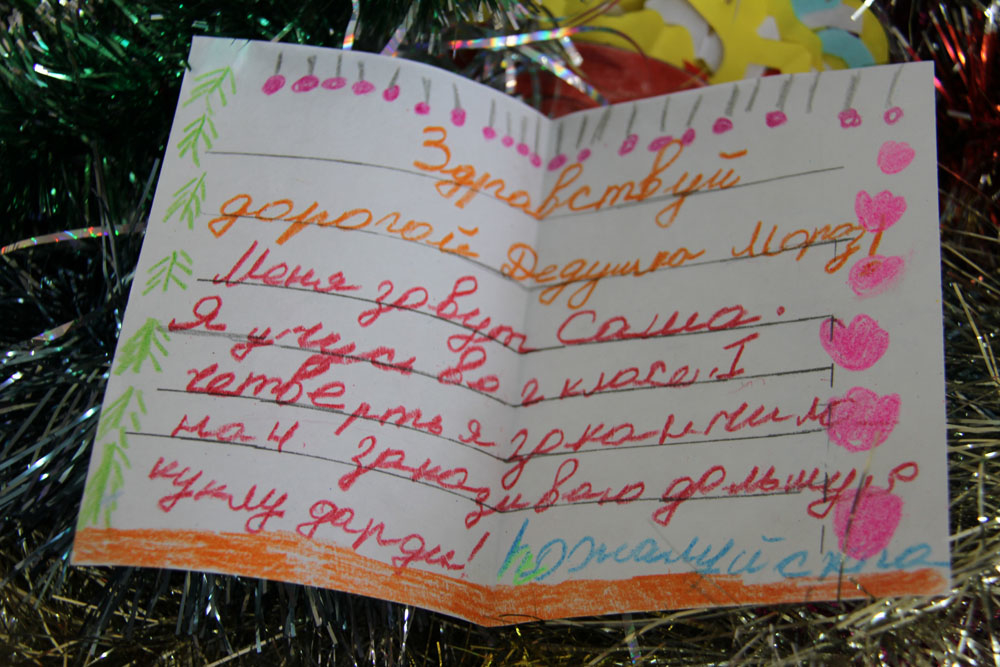 Здравствуй
дорогой Дедушка Мороз!
Меня зовут Саша.
Я учусь во 2 класе. I
четверть я заканчил
на 4. Заказиваю большую
куклу барби!
пожалуйста